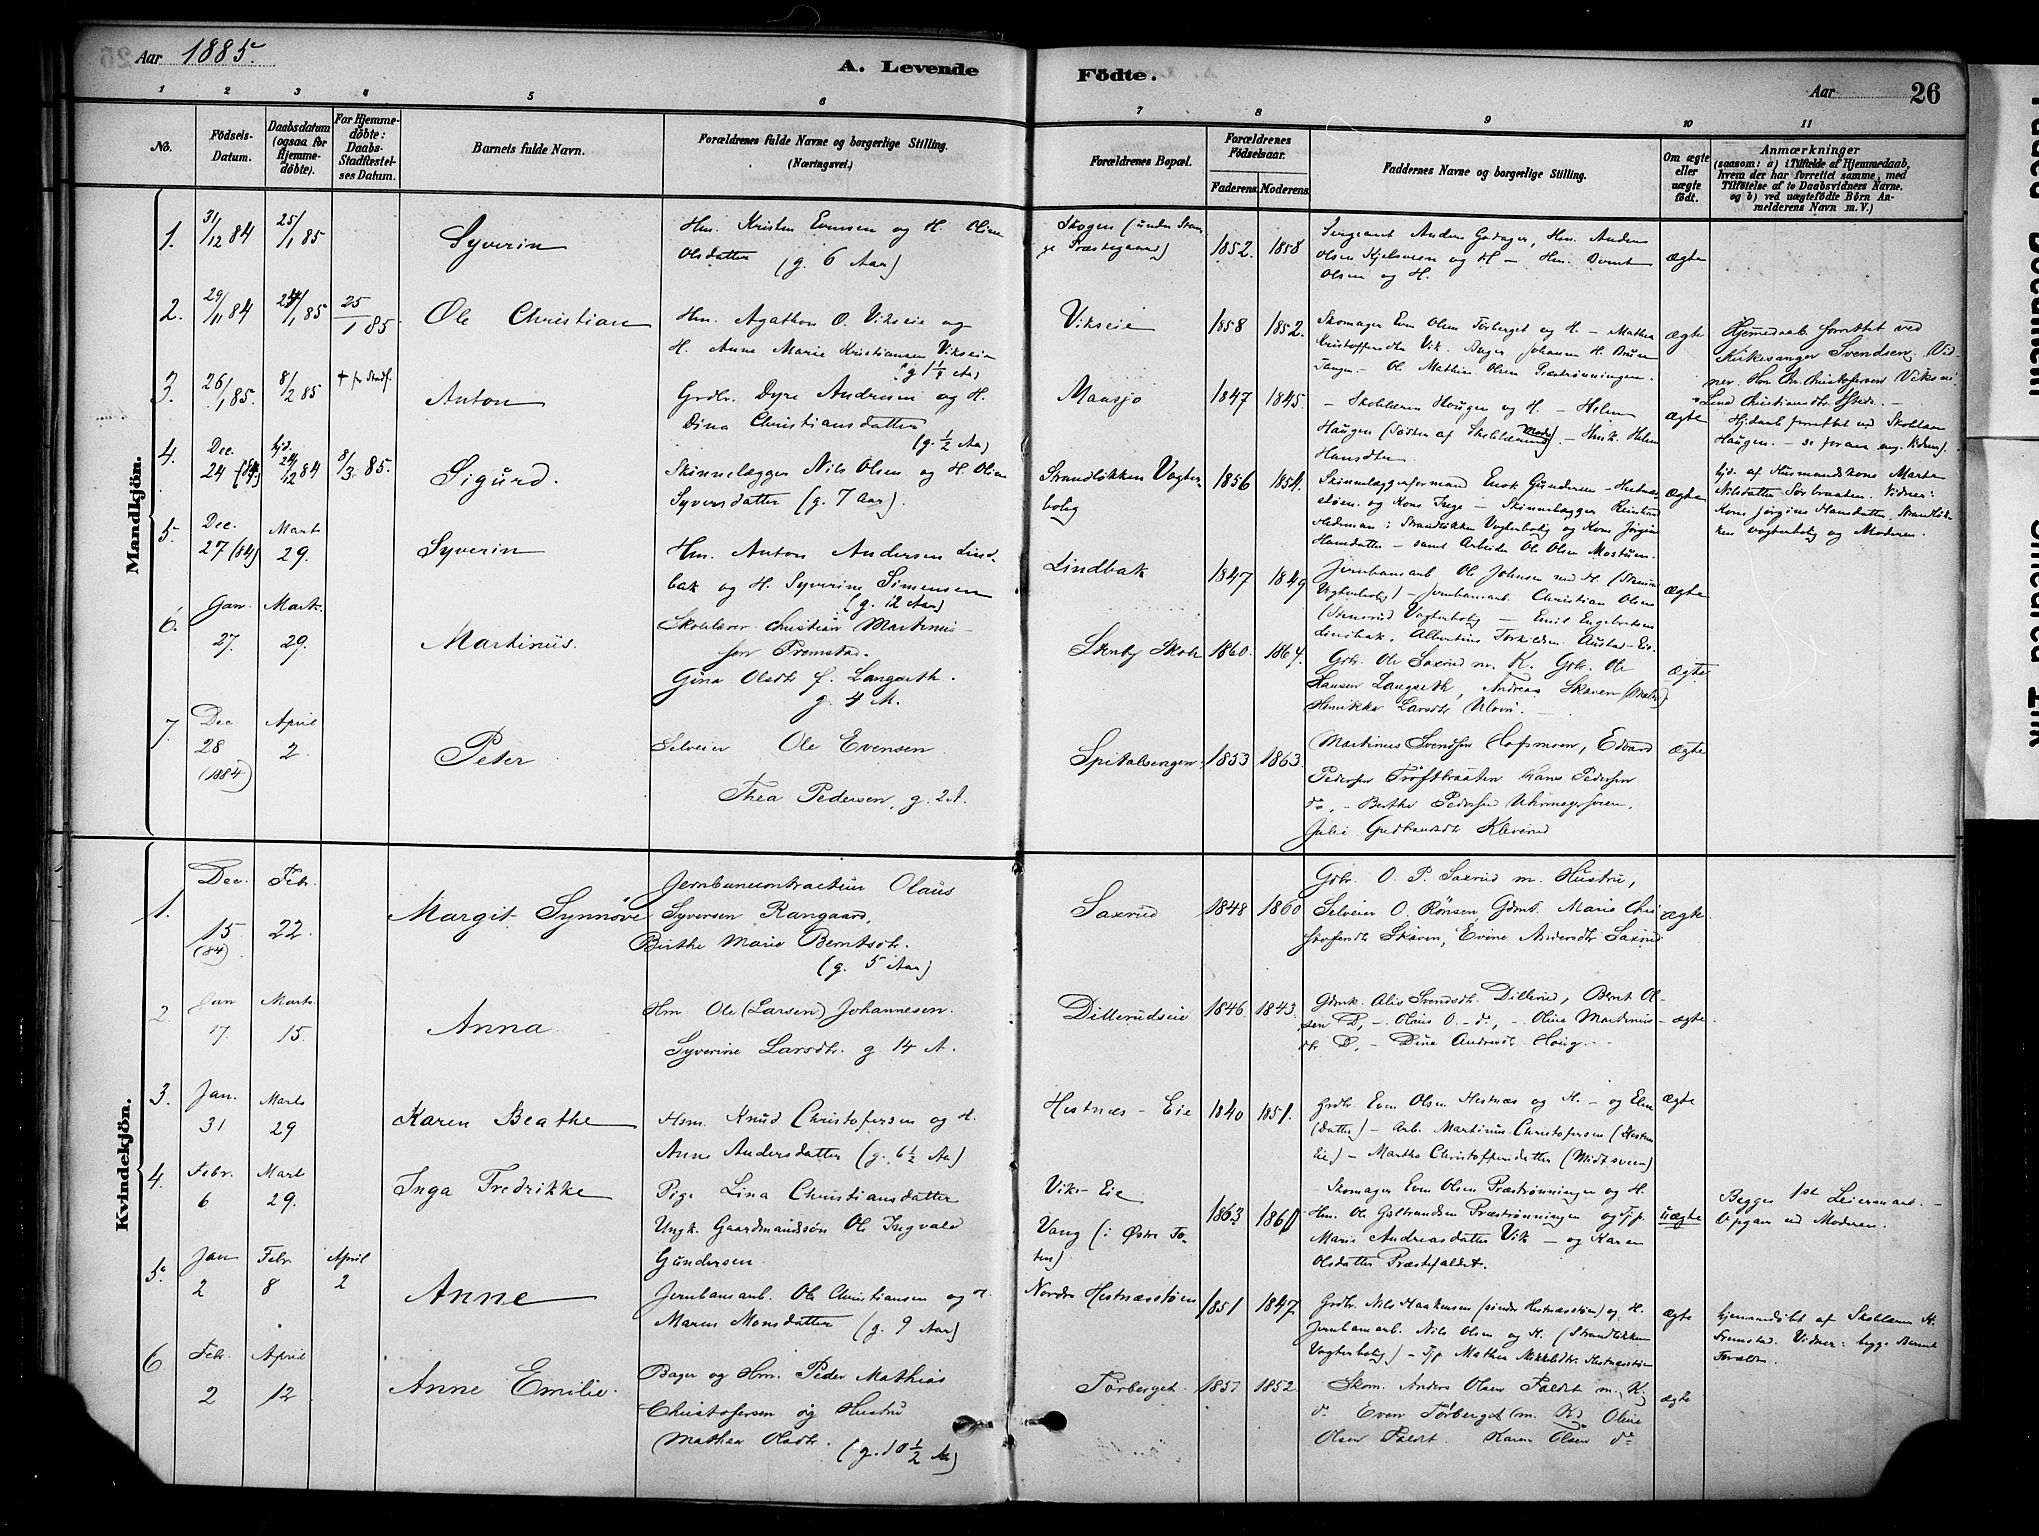 Aar 1885.
A. Levende
Födte.
Aar
26
1 2 3 4 5 6 7 8 9 10 11
No.
Födsels-Datum.
Daabsdatum (ogsaa for Hjemme-döbte).
For Hjemme-döbte: Daabs-Stadfæstel-ses Datum.
Barnets fulde Navn.
Forældrenes fulde Navne og borgerlige Stilling.
(Næringsvei.)
Forældrenes Bopæl.
Forældrenes Födselsaar.
Faderens. Moderens.
Faddernes Navne og borgerlige Stilling.
Om ægte eller uægte födt.
Anmærkninger
(saasom: a) i Tilfælde af Hjemmedaab, hvem der har forrettet samme, med Tilföielse af to Daabsvidners Navne. og b) ved uægtefödte Börn An-melderens Navn m. V.)
Mandkjön.
1. 31/12 84 25/1 85 Syverin
Hm. Kristen Evensen og H. Oline
Olsdatter (g. 6 Aar)
Skogen (under Stan-
ge Præstegaard)
1852. 1858
Sergeant Anders Godager, Hm. Anders
Olsen Kjelsveen og H — Hm. Bernt
Olsen og H.
ægte
2. 29/11 84 24/1 85 25/1 85. Ole Christian
Hm. Agathon O. Vikseie og
H. Anne Marie Kristiansen Vikseie
(g 1 1/4 Aa)
Vikseie
1858 1852.
Skomager Even Olsen Törberget og H. — Mathea
Kristoffersdtr Vik. Bager Johannes H. Bruen
Tangen — Ole Mathias Olsen Præstrønningen.
ægte
Hjemedaab forrettet ved
Kirkesanger Svendsen. Vid-
ner. Hm An. Christofersen Vikseie
Lina Christiansdtr ibsteds. —
3. 26/1 85. 8/2 85 + før Stadf. Anton
Grdbr. Dyre Andresen og H.
Dina Christiansdatter
(g. 1/2 Aa)
Maasjø
1847 1845.
— Skolelærer Hougen og H. — Helene
Haugen (Søster af Skolelærerens Moder) — Husk. Helene
Hansdtr
ægte
Hjdaab forrettet ved Skolelærer
Haugen.
4. Dec. 24 (84) hjd. 24/12 84 8/3 85. Sigurd.
Skinnelægger Nils Olsen og H. Oline
Syversdatter (g. 7 Aar).
Strandløkken Vogter-
bolig
1856 1854.
Skinnelæggerformand Enok Gundersen — Hestnæs-
støen og Kone Inge — Skinnelægger Reinhard
Hedeman i Strandløkken Vogterbolig og Kone Jørgine
Hansdatter — samt Arbeider Ole Olsen Mostuen.
ægte
hjd. af Husmandskone Marte
Nilsdatter Sørbraaten. Vidner:
Kone Jørgine Hansdatter Strandløk-
ken vogterbolig og Moderen.
5. Dec. 27 (84) Marts 29. Syverin
Hm. Anton Andersen Lind-
bak og H. Syverine Simensen
(g. 12 Aar)
Lindbak
1847 1849
Jernbanearb. Ole Johnsen med H. (Stensrud
Vogterbolig) — Jernbanearb. Christian Olsen
(Stensrud Vogterbolig — Emil Engebretsen
Lindbak, Albertine Torkildsen Austad-Eie.
ægte
6. Jan. 27. Marts. 29. Martinus.
Skolelærer Christian Martinus-
sen Fremstad.
Gina Olsdtr f. Langseth.
g. 4 A.
Stenby Skole
1860. 1864.
Gbr. Ole Saxrud m. K. Gbr. Ole
Hansen Langseth, Andreas Skaven (Maler)
Henrikke Larsdtr Ulovn. —
ægte
7. Dec 28 (1884) April 2. Peter
Selveier Ole Evensen.
Thea Pedersen, g. 2 A.
Spitalsengen
1853 1863.
Martinus Svendsen Hofsmoen, Edvard
Pedersen Trøftbraaten Hans Pedersen
do, — Berthe Pedersen
Julie Gudbrandsdtr Kleverud
ægte
Kvindekjön.
1. Dec. 15. (84) Febr. 22. Margit Synnøve
Jernbanecontracteur Olaus
Syversen Rangaard,
Birthe Marie Berntsdtr.
(g. 5 Aar)
Saxrud
1848 1860
Gdbr. O. P. Saxrud m. Hustru,
Selveier O. Rønsen, Gdmt. Marie Chri-
stofersdtr Skaven, Evine Andersdtr Saxrud
ægte
2. Jan 17. Marts. 15. Anna
Hm. Ole (Larsen) Johannesen.
Syverine Larsdtr. g 14 A.
Dillerudseie
1846 1843.
Gdmk. Alis Svendsdtr. Dillerud, Bernt Ol-
sen D, — Olaus O — do, — Oline Martinus-
dtr D, — Dina Andersdtr Houg. —
ægte
3. Jan. 31 Marts 29 Karen Beathe
Hsm. Knud Christofersen og H.
Anne Andersdatter (g. 6 1/2 Aa)
Hestnæs-Eie
1840 1851.
Grdbr. Even Olsen Hestnæs og H. — og Eline
(datter) — Arb. Martinus Christofersen (Hestnæs
Eie) — Martha Christoffersdatter (Midtsveen)
ægte
4. Febr. 6 Marts 29. Inga Fredrikke
Pige Lina Christiansdatter
Ungk. Gaardmandssøn Ole Ingvald
Gundersen.
Viks-Eie
Vang (i Østre To-
ten)
1863 1860
— Skomager Even Olsen Præstrønningen og H.
Hm. Ole Præstrønningen og Pige
Marie Andreasdatter Vik — og Karen
Olsdatter Præstefaldet.
uægte
Begges 1st Leiermaal. —
Opgav ved Moderen.
5. Jan 2 Febr. 8 April 2 Anne
Jernbanearb. Ole Christiansen og H.
Maren Monsdatter (g. 9 Aar)
Nordre Hestnæsstøen
1851 1847
Grdbr. Nils Haakensen (søndre Hestnæsstøen) og H.
Jernbanearb. Nils Olsen og H. (Strandløkken
Vogterbolig) — Pige Mathea Mikkelsdtr. Hestnæsstøen
ægte
hjemmedøbt af Skolelærer
Fremstad. Vidner: begge Barnets
Forældre.
6. Febr. 2 April. 12 Anne Emilie.
Bager og Hm. Peder Mathias
Christofersen og Hustru
Mathea Olsdtr. (g. 10 1/2 Aa)
Törberget.
1857 1852.
Skom. Anders Olsen Faldet m. K.
do. Even Törberget (m. K) Oline
Olsen Faldet. Karen Olsen do
ægte